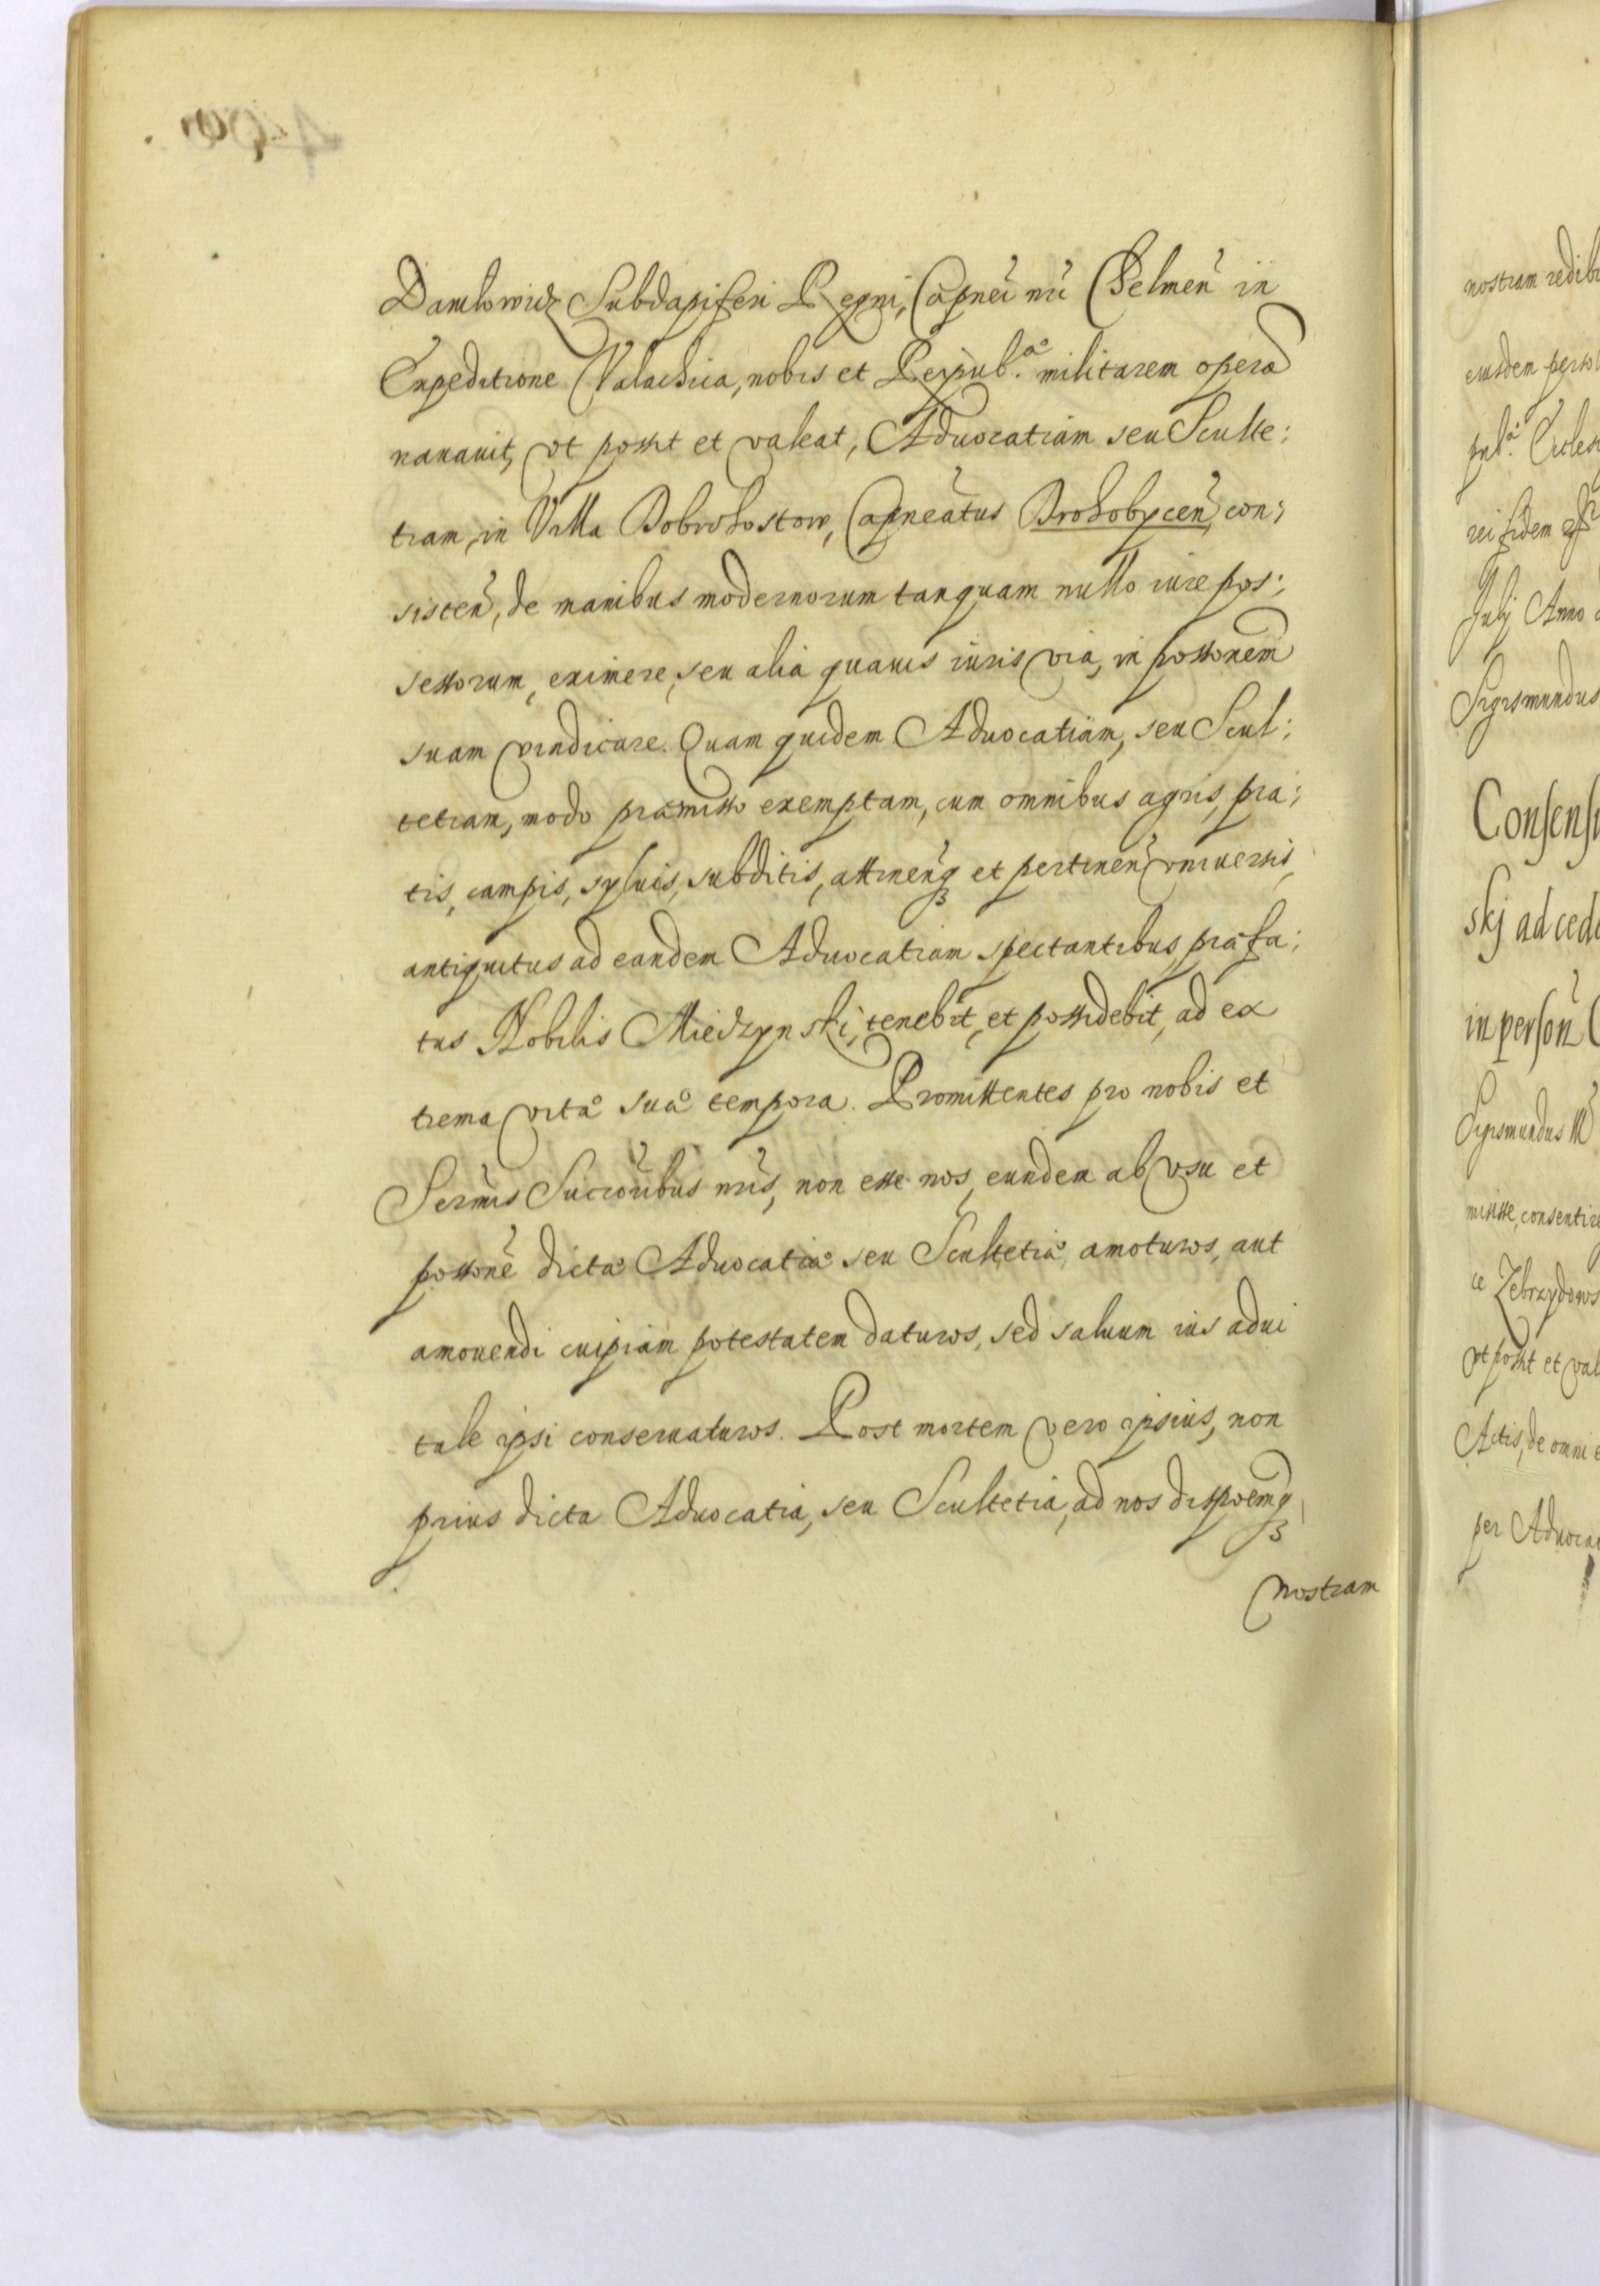 Daniłowicz Subdapiferi Regni, Capnei nri Chelmen in
Expeditione Valachica, nobis et Reipub.ae militarem opera
nauauit, vt possit et valeat, Aduocatiam seu Sculte:
tiam, in Villa Dobrohostow, Capneatus Drohobycen, con:
sisten, de manibus modernorum tanquam nullo iure pos:
sessorum, eximere, seu alia quauis iuris via, in possionem
suam vindicare. Quam quidem Aduocatiam, seu Scul:
tetiam, modo praemisso exemptam, cum omnibus agris, pra:
tis, campis, syluis, subditis, attinenq3 et pertinen vniuersis,
antiquitus ad eandem Aduocatiam spectantibus, praefa:
tus Nobilis Miedzynski, tenebit, et possidebit, ad ex
trema vitae suae tempora. Promittentes pro nobis et
Sermis Succoribus nris, non esse nos, eundem ab vsu et
possione dictae Aduocatiae seu Scultetiae, amoturos, aut
amouendi cuipiam potestatem daturos, sed saluum ius adui
tale ipsi conseruaturos. Post mortem vero ipsius, non
prius dicta Aduocatia, seu Scultetia, ad nos disspoemq3
nostram
nostram redib
eiusdem perso
pub.ae Eccles
rei fidem
Julij Anno
Sigismundus
Consensu
skj ad ced
in person
Sigismundus
misisse, consentire
ce Zebrzydows
vt possit et val
Actis, de omni
per Aduoca